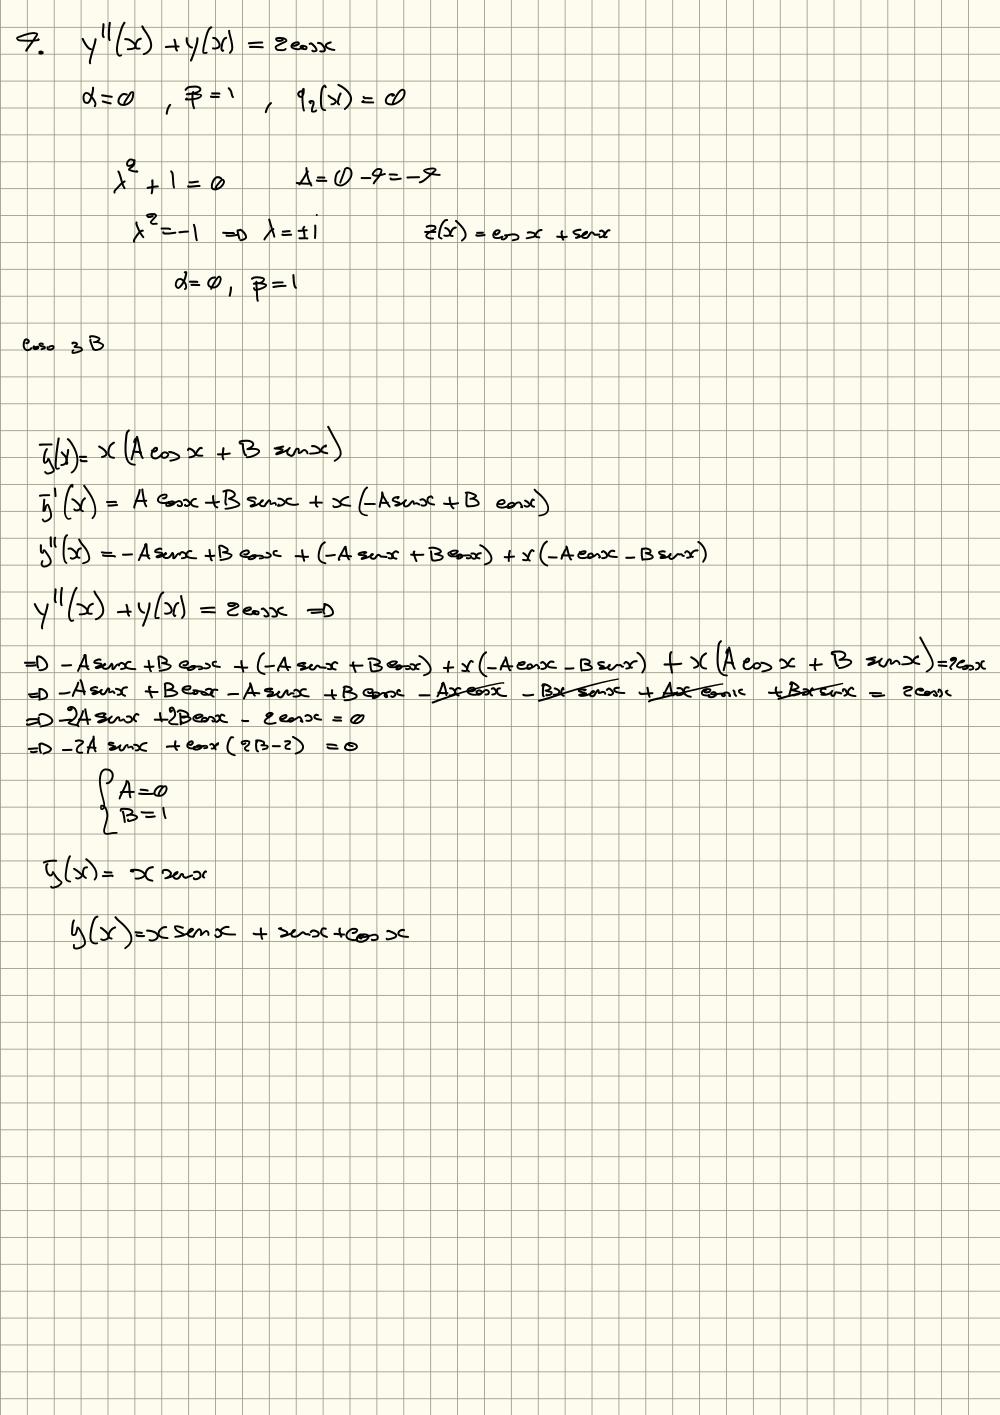 4. y''(x) + y(x) = 2cosx
α=0 , β=1 , q₂(x) = 0
λ² + 1 = 0 Δ = 0 - 4 = -4
λ² = -1 => λ = ±i z(x) = cos x + senx
α=0, β=1
Caso 3B
ȳ(x) = x(A cos x + B senx)
ȳ'(x) = A cosx + B senx + x(-Asenx + B cosx)
y''(x) = -A senx + B cosx + (-A senx + B cosx) + x(-A cosx - B senx)
y''(x) + y(x) = 2cosx =>
=> -A senx + B cosx + (-A senx + B cosx) + x(-A cosx - B senx) + x(A cos x + B senx) = 2cosx
=> -A senx + B cosx - A senx + B cosx - Ax cosx - Bx senx + Ax cosx + Bx senx = 2cosx
=> -2A senx + 2B cosx - 2cosx = 0
=> -2A senx + cosx (2B-2) = 0
{ A=0
B=1
ȳ(x) = x senx
y(x) = x senx + senx + cos x